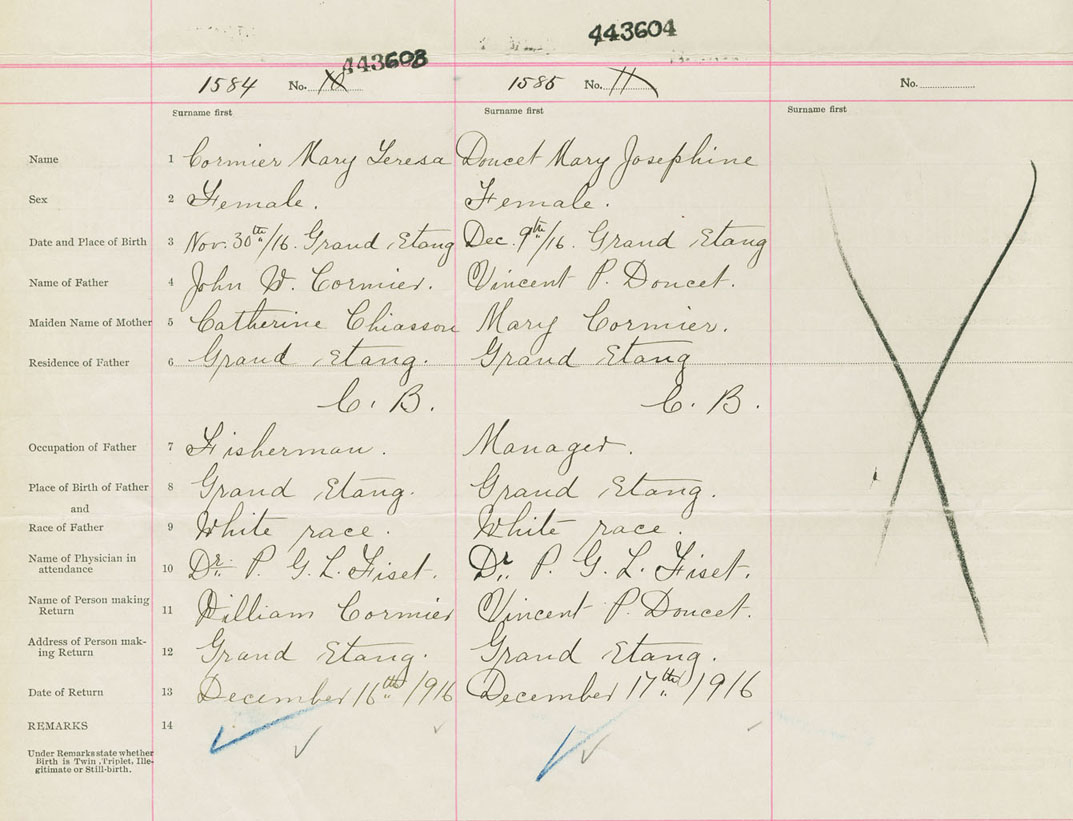 443603 443604
1584 No. 10 1585 No. 11 No.
Surname first Surname first Surname first
Name 1 Cormier Mary Teresa Doucet Mary Josephine
Sex 2 Female. Female.
Date and Place of Birth 3 Nov. 30th/16. Grand Etang Dec. 9th/16. Grand Etang
Name of Father 4 John W. Cormier. Vincent P. Doucet.
Maiden Name of Mother 5 Catherine Chiasson Mary Cormier.
Residence of Father 6 Grand Etang. Grand Etang
C. B. C. B.
Occupation of Father 7 Fisherman. Manager.
Place of Birth of Father 8 Grand Etang. Grand Etang.
and
Race of Father 9 White race. White race.
Name of Physician in
attendance 10 Dr. P. G. L. Fiset. Dr. P. G. L. Fiset.
Name of Person making
Return 11 William Cormier Vincent P. Doucet.
Address of Person mak-
ing Return 12 Grand Etang. Grand Etang.
Date of Return 13 December 16th 1916 December 17th 1916
REMARKS 14
Under Remarks state whether
Birth is Twin, Triplet, Ille-
gitimate or Still-birth.